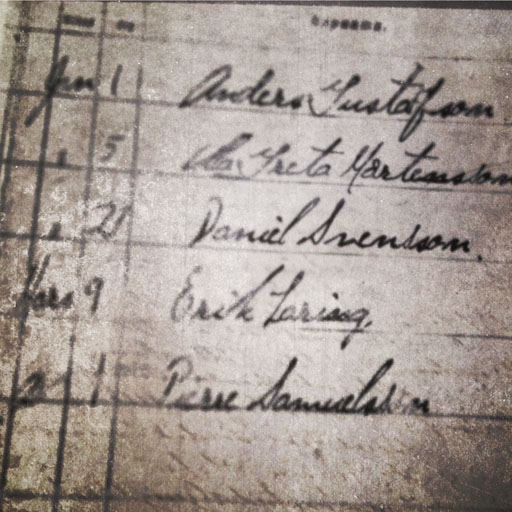 Jan 1 Anders Gustafson
" 5 Greta Martensson
" 21 Daniel Svensson.
Mars 9 Erik Laring,
" 1 Pierre Samuelsson